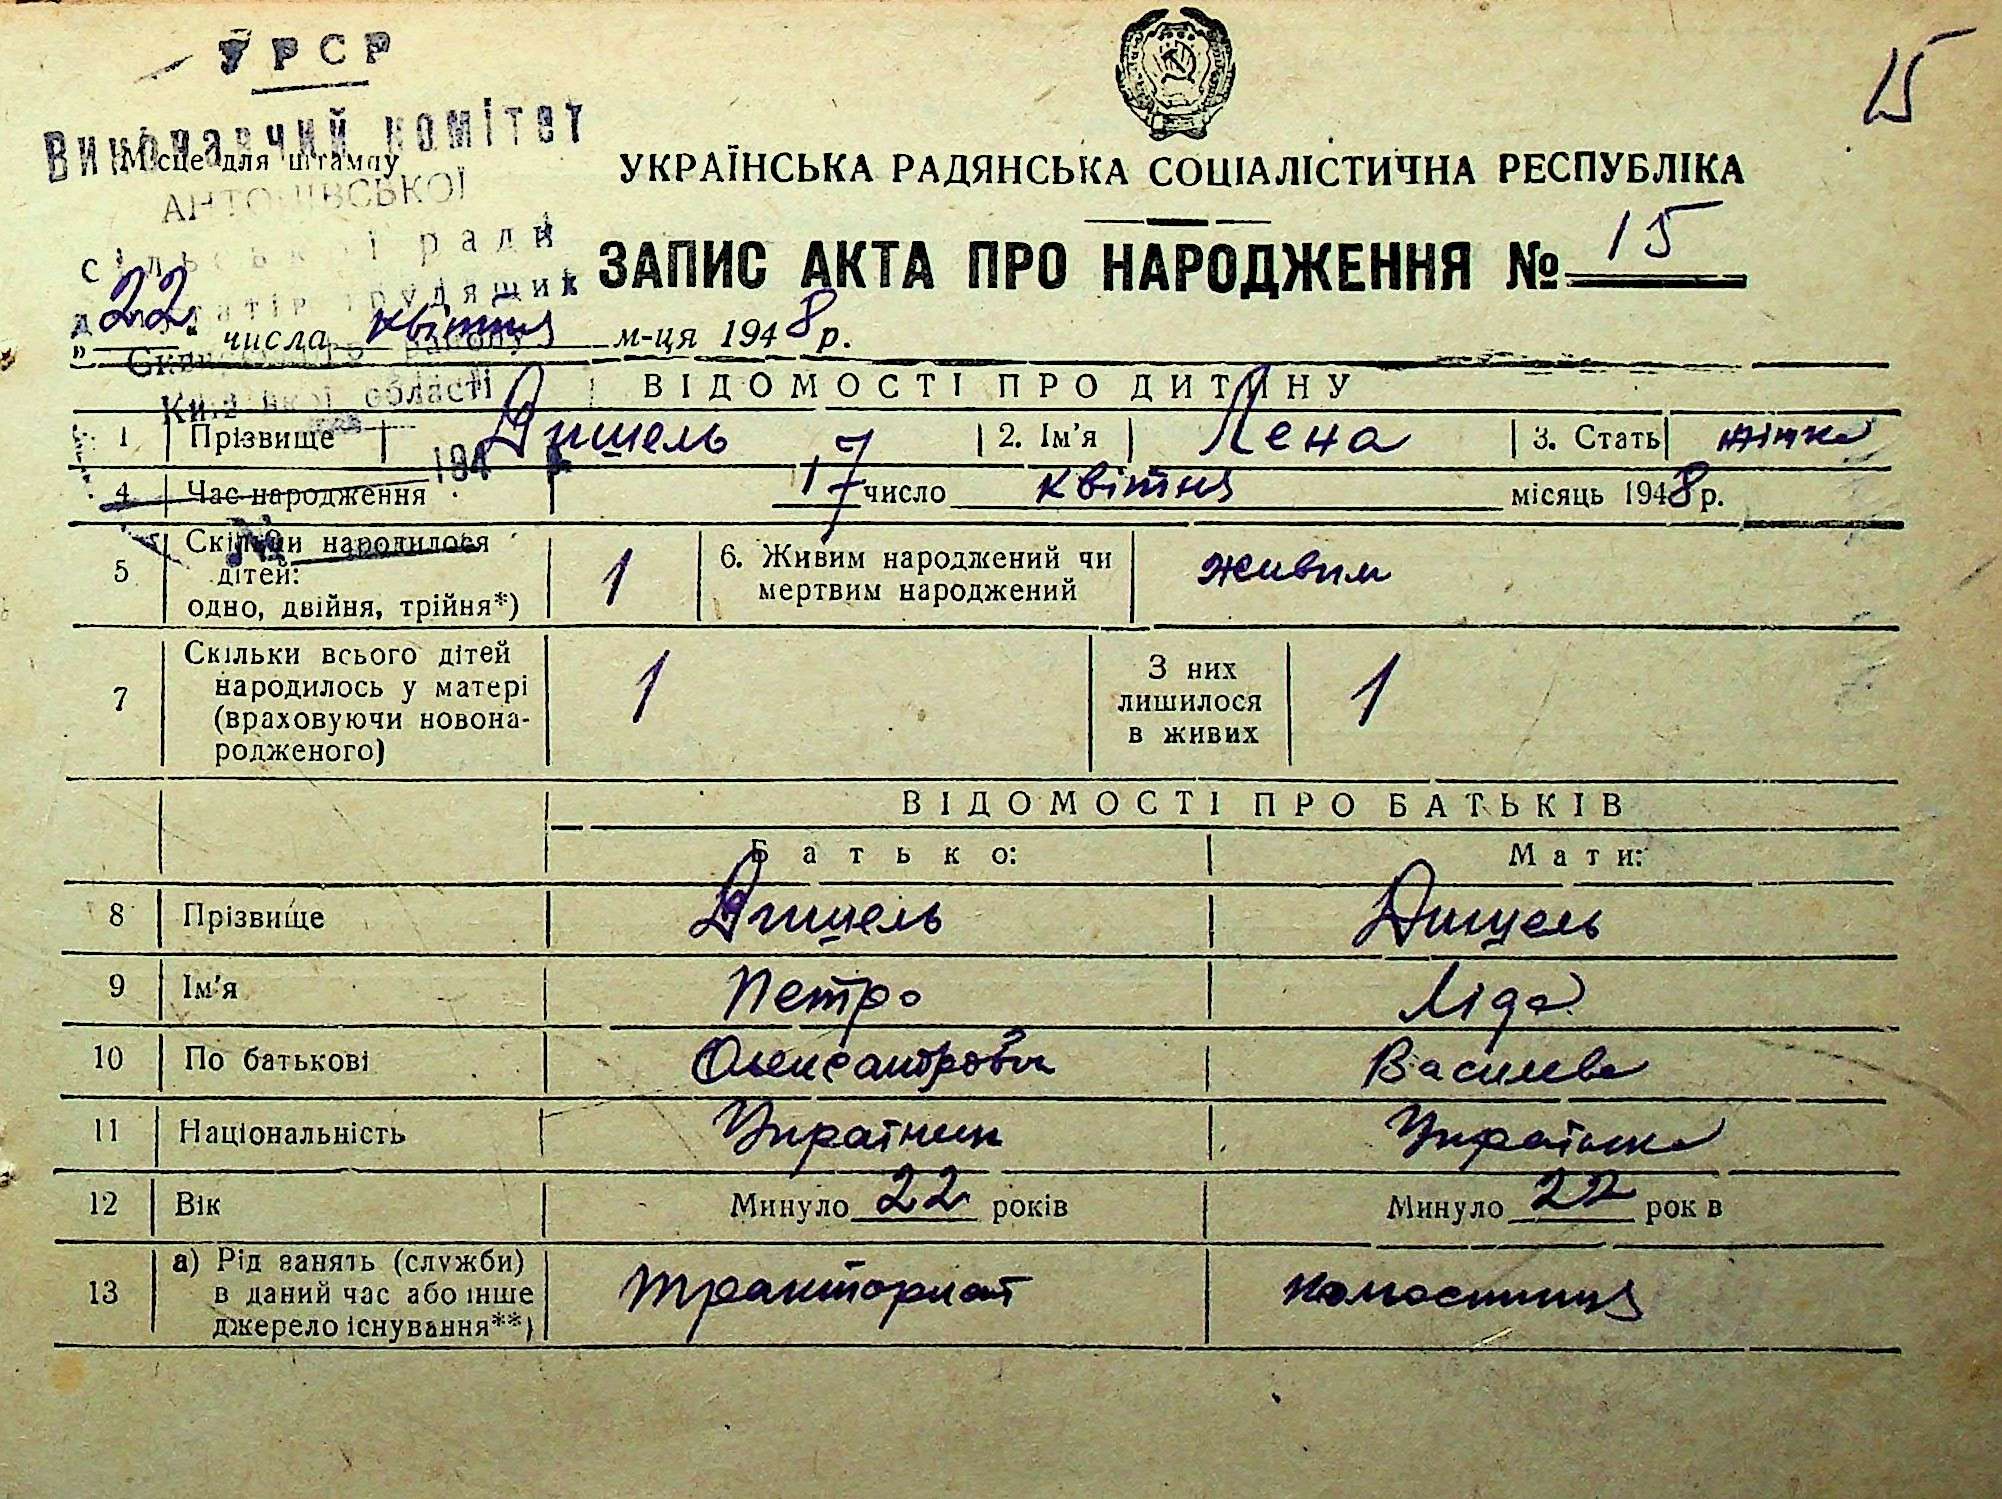 15
УРСР
Виконавчий комітет
Місце для штампу
УКРАЇНСЬКА РАДЯНСЬКА СОЦІАЛІСТИЧНА РЕСПУБЛІКА
сільської ради
ЗАПИС АКТА ПРО НАРОДЖЕННЯ № 15
„22“ числа квітня м-ця 1948 р.
області
ВІДОМОСТІ ПРО ДИТИНУ
1 Прізвище Дишель 2. Ім'я Лена 3. Стать жінка
194
4 Час народження 17 число квітня місяць 1948 р.
5 Скільки народилося дітей: одно, двійня, трійня*) 1 6. Живим народжений чи мертвим народжений живим
7 Скільки всього дітей народилось у матері (враховуючи новонародженого) 1 З них лишилося в живих 1
ВІДОМОСТІ ПРО БАТЬКІВ
Батько: Мати:
8 Прізвище Дишель Дишель
9 Ім'я Петро Ліда
10 По батькові Олександрович Василева
11 Національність Українець Українка
12 Вік Минуло 22 років Минуло 22 рок в
13 а) Рід занять (служби) в даний час або інше джерело існування**) тракторист колгоспниця